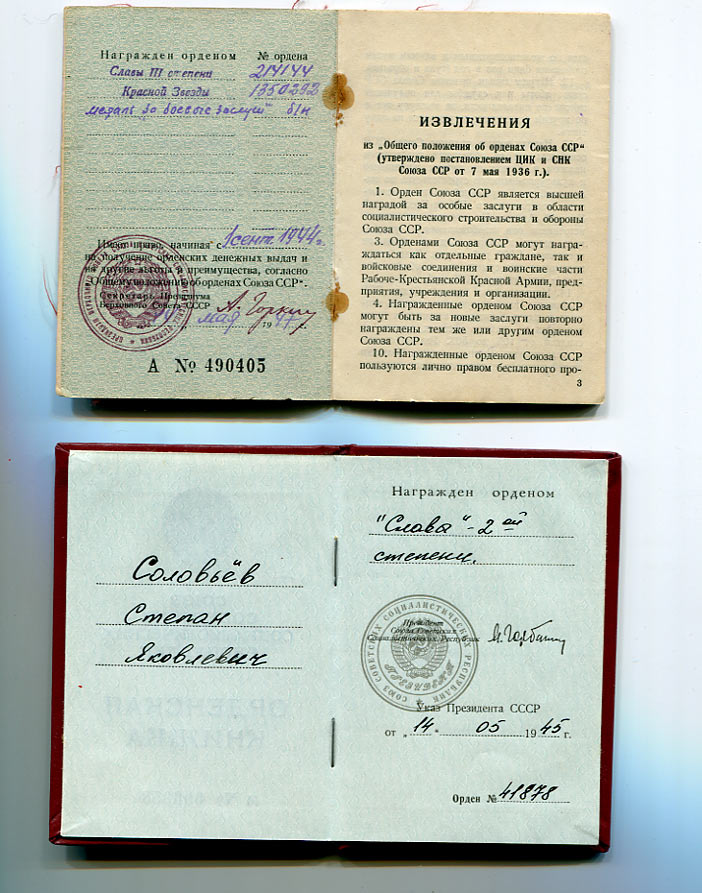 Награжден орденом № ордена
Славы III степени 214144
Красной Звезды 1350292
медаль "За боевые заслуги" б/н
Имеет право, начиная с 1 сент. 1944 г.
на получение орденских денежных выдач и
на другие льготы и преимущества, согласно
"Общему положению об орденах СССР".
Секретарь Президиума
Верховного Совета СССР
А. Горкин
мая 1947
А № 490405
ИЗВЛЕЧЕНИЯ
из „Общего положения об орденах Союза ССР"
(утверждено постановлением ЦИК и СНК
Союза ССР от 7 мая 1936 г.).
1. Орден Союза ССР является высшей
наградой за особые заслуги в области
социалистического строительства и обороны
Союза ССР.
3. Орденами Союза ССР могут награ-
ждаться как отдельные граждане, так и
войсковые соединения и воинские части
Рабоче-Крестьянской Красной Армии, пред-
приятия, учреждения и организации.
4. Награжденные орденом Союза ССР
могут быть за новые заслуги повторно
награждены тем же или другим орденом
Союза ССР.
10. Награжденные орденом Союза ССР
пользуются лично правом бесплатного про-
3
Соловьёв
Степан
Яковлевич
Награжден орденом
"Слава" - 2ой
степени.
Президент
Союза Советских
Социалистических Республик
М. Горбачев
СОЮЗ СОВЕТСКИХ СОЦИАЛИСТИЧЕСКИХ РЕСПУБЛИК
ПРЕЗИДЕНТ
Указ Президента СССР
от „14" 05 1945 г.
Орден № 41878